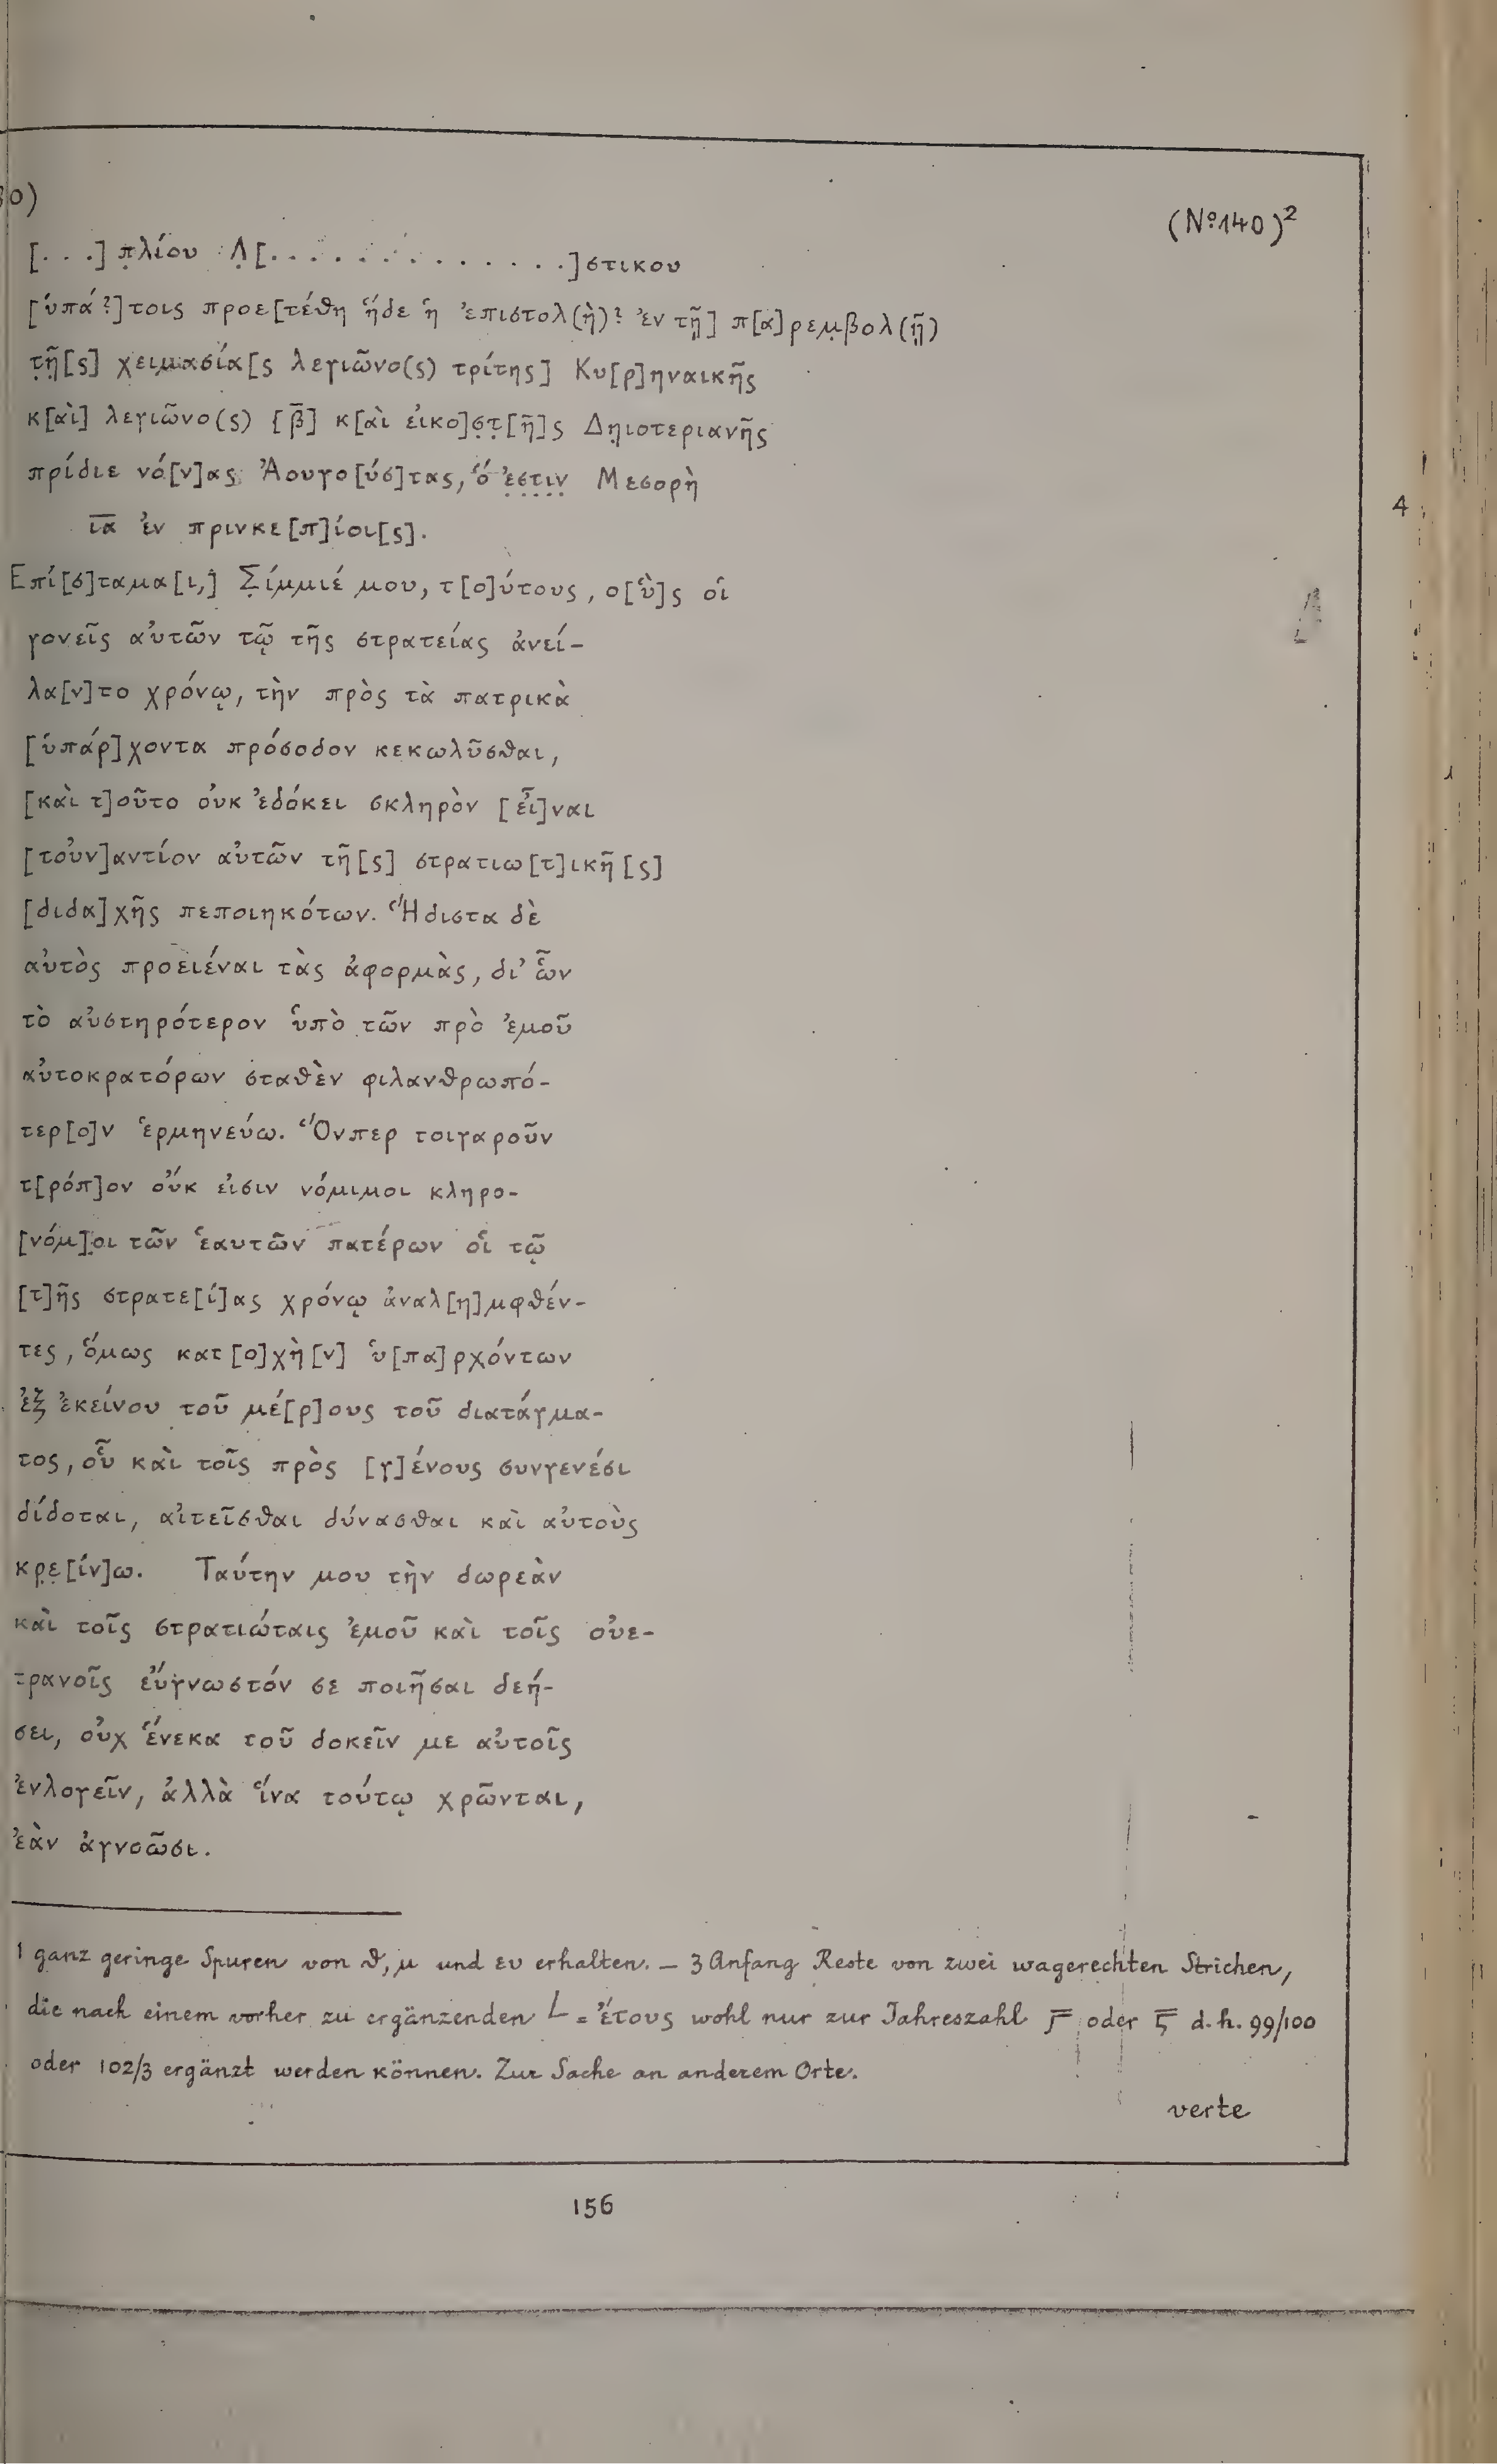 0)
(No 140)²
[. . .] π̣λίου Λ̣[. . . . . . . . . . . . . .]στικου
[ὑπά?]τοις προε[τέθη ἥδε ἡ ἐπιστολ(ὴ)? ἐν τῇ] π[α]ρεμ̣βολ(ῇ)
τ̣ῆ̣[ς] χειμασία[ς λεγιῶνο(ς) τρίτης] Κυ[ρ]ηναικῆς
κ[αὶ] λεγιῶνο(ς) {β̅] κ[αὶ εἰκο]σ̣τ̣[ῆ]ς Δη̣ιοτεριανῆς
πρίδιε νό[ν]ας Ἀουγο[ύσ]τας, ὅ ἐστιν Μεσορὴ
ι̅α̅ ἐν πρινκε[π]ίοι[ς].
Επί[σ]ταμα[ι,] Σ̣ίμμιέ μου, τ[ο]ύτους, ο[ὓ]ς οἱ
γονεῖς αὐτῶν τῷ τῆς στρατείας ἀνεί-
λα[ν]το χρόνῳ, τὴν πρὸς τὰ πατρικὰ
[ὑπάρ]χοντα πρόσοδον κεκωλῦσθαι,
[καὶ τ]οῦτο οὐκ ἐδόκει σκληρὸν [εἶ]ναι
[τοὐν]αντίον αὐτῶν τῆ[ς] στρατιω[τ]ικῆ[ς]
[διδα]χῆς πεποιηκότων. Ἥδιστα δὲ
αὐτὸς προειέναι τὰς ἀφορμὰς, δι’ ὧν
τὸ αὐστηρότερον ὑπὸ τῶν πρὸ ἐμοῦ
αὐτοκρατόρων σταθὲν φιλανθρωπό-
τερ[ο]ν ἑρμηνεύω. Ὅνπερ τοιγαροῦν
τ[ρόπ]ον οὔκ εἰσιν νόμιμοι κληρο-
[νόμ]οι τῶν ἑαυτῶν πατέρων οἱ τῷ
[τ]ῆς στρατε[ί]ας χρόνῳ ἀναλ[η]μφθέν-
τες, ὅμως κατ[ο]χὴ[ν] ὑ[πα]ρχόντων
ἐξ ἐκείνου τοῦ μέ[ρ]ους τοῦ διατάγμα-
τος, οὗ καὶ τοῖς πρὸς [γ]ένους συνγενέσι
δίδοται, αἰτεῖσθαι δύνασθαι καὶ αὐτοὺς
κρ̣ε̣[ίν]ω. Ταύτην μου τὴν δωρεὰν
καὶ τοῖς στρατιώταις ἐμοῦ καὶ τοῖς οὐε-
τρανοῖς εὔγνωστόν σε ποιῆσαι δεή-
σει, οὐχ ἕνεκα τοῦ δοκεῖν με αὐτοῖς
ἐνλογεῖν, ἀλλὰ ἵνα τούτῳ χρῶνται,
ἐὰν ἀγνοῶσι.
1 ganz geringe Spuren von ϑ, μ und ευ erhalten. – 3 Anfang Reste von zwei wagerechten Strichen,
die nach einem vorher zu ergänzenden L = ἔτους wohl nur zur Jahreszahl Γ̅ oder ϛ̅ d. h. 99/100
oder 102/3 ergänzt werden können. Zur Sache an anderem Orte.
verte
156